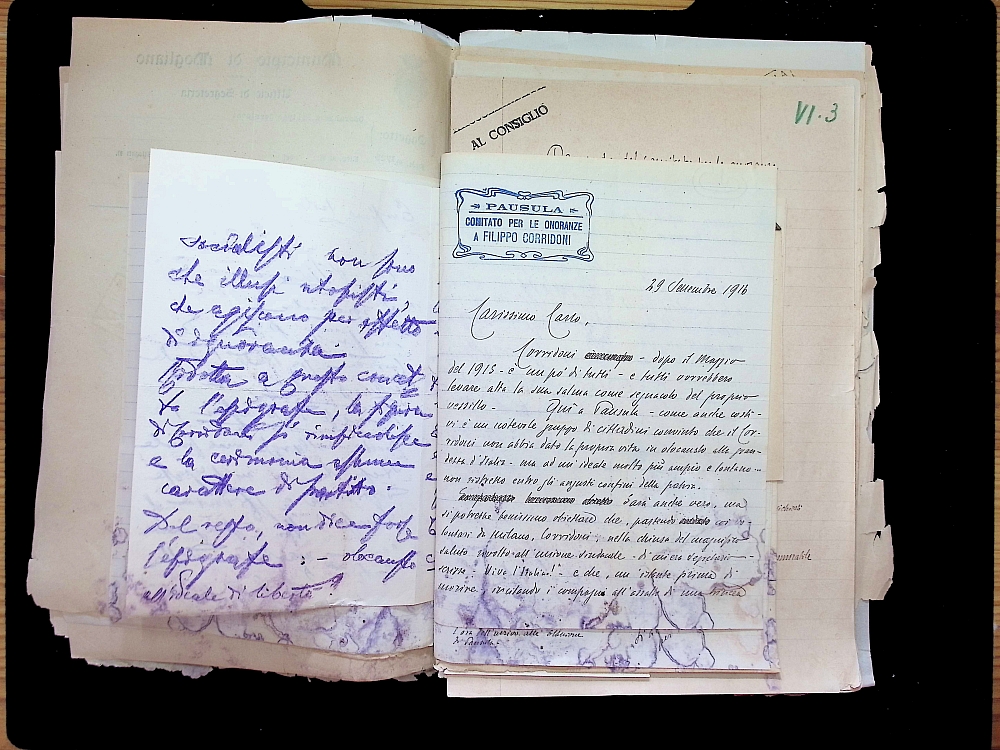 Municipio di Mogliano
Ufficio di Segreteria
socialisti non sono
che illusi utopisti,
che agiscono per effetto
di ignoranza.
Ridotta a questo concet
to l'epigrafe, la figura
di Corridoni si rimpicciolisce
e la cerimonia assume
carattere di partito.
Del resto, non dice forse
l'epigrafe : - olocausto
all'ideale di libertà?
AL CONSIGLIO
VI.3
PAUSULA
COMITATO PER LE ONORANZE
A FILIPPO CORRIDONI
29 1916
Carissimo Carlo,
Corridoni - dopo il Maggio
del 1915 - è un po' di tutti - e tutti vorrebbero
levare alta la sua salma come segnacolo del proprio
vessillo. - Qui a Pausula - come anche costì -
vi è un notevole gruppo di cittadini convinto che il Cor-
ridoni non abbia dato la propria vita in olocausto alla gran-
dezza d'Italia - ma ad un'ideale molto più ampio e lontano -
non ristretto entro gli angusti confini della patria.
Sarà anche vero, ma
si potrebbe benissimo obiettare che, partendo coi vo-
lontari da Milano, Corridoni, nella chiusa del magnifico
saluto rivolto all'unione sindacale
scrisse: "Viva l'Italia!" e che, un'istante prima di
morire, incitando i compagni all'assalto di una trincea